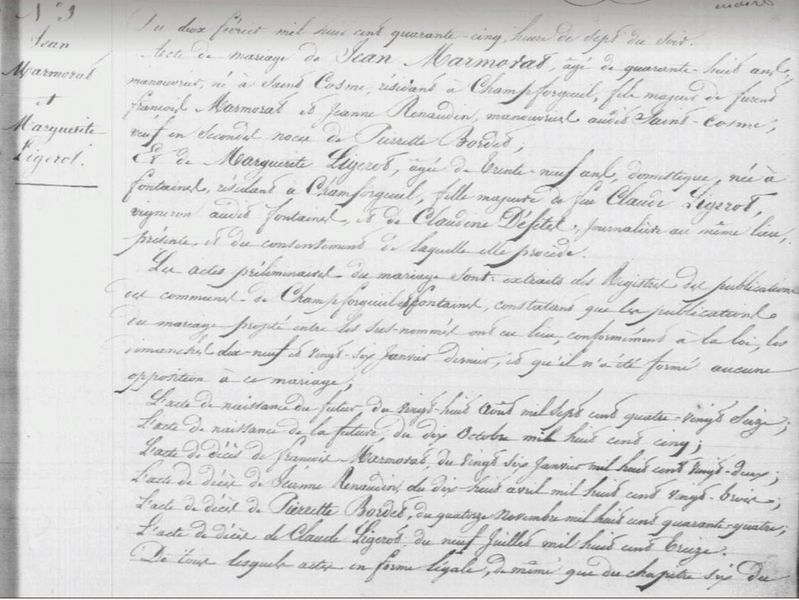 N° 3
Jean
Marmorat
et
Marguerite
Ligerot.
Du deux février mil huit cent quarante-cinq, heure de sept du soir.
Acte de mariage de Jean Marmorat, âgé de quarante-huit ans,
manouvrier, né à Saint Cosme, résidant à Champforgueil, fils majeur de furent
françois Marmorat et Jeanne Renaudin, manouvriers audit Saint-Cosme,
veuf en secondes noces de Pierrette Bordet,
Et de Marguerite Ligerot, âgée de trente-neuf ans, domestique, née à
fontaines, résidant à Champforgueil, fille majeure de feu Claude Ligerot,
vigneron audit fontaines, et de Claudine Défétes, journalière au même lieu,
présente et du consentement de laquelle elle procède.
Les actes préliminaires du mariage sont: extraits des Registres des publications
des communes de Champforgueil et fontaines, constatant que les publications
du mariage projeté entre les sus-nommés ont eu lieu, conformément à la loi, les
dimanches dix-neuf et vingt-six Janvier dernier, et qu'il n'a été formé aucune
opposition à ce mariage;
L'acte de naissance du futur, du vingt-huit Août mil sept cent quatre-vingt seize;
L'acte de naissance de la future, du dix Octobre mil huit cent cinq;
L'acte de décès de françois Marmorat, du vingt six Janvier mil huit cent vingt-deux;
L'acte de décès de Jeanne Renaudin, du dix-huit avril mil huit cent vingt-trois;
L'acte de décès de Pierrette Bordet, du quatorze Novembre mil huit cent quarante-quatre;
L'acte de décès de Claude Ligerot, du neuf Juillet mil huit cent treize.
De tous lesquels actes en forme légale, de même que du chapitre six du